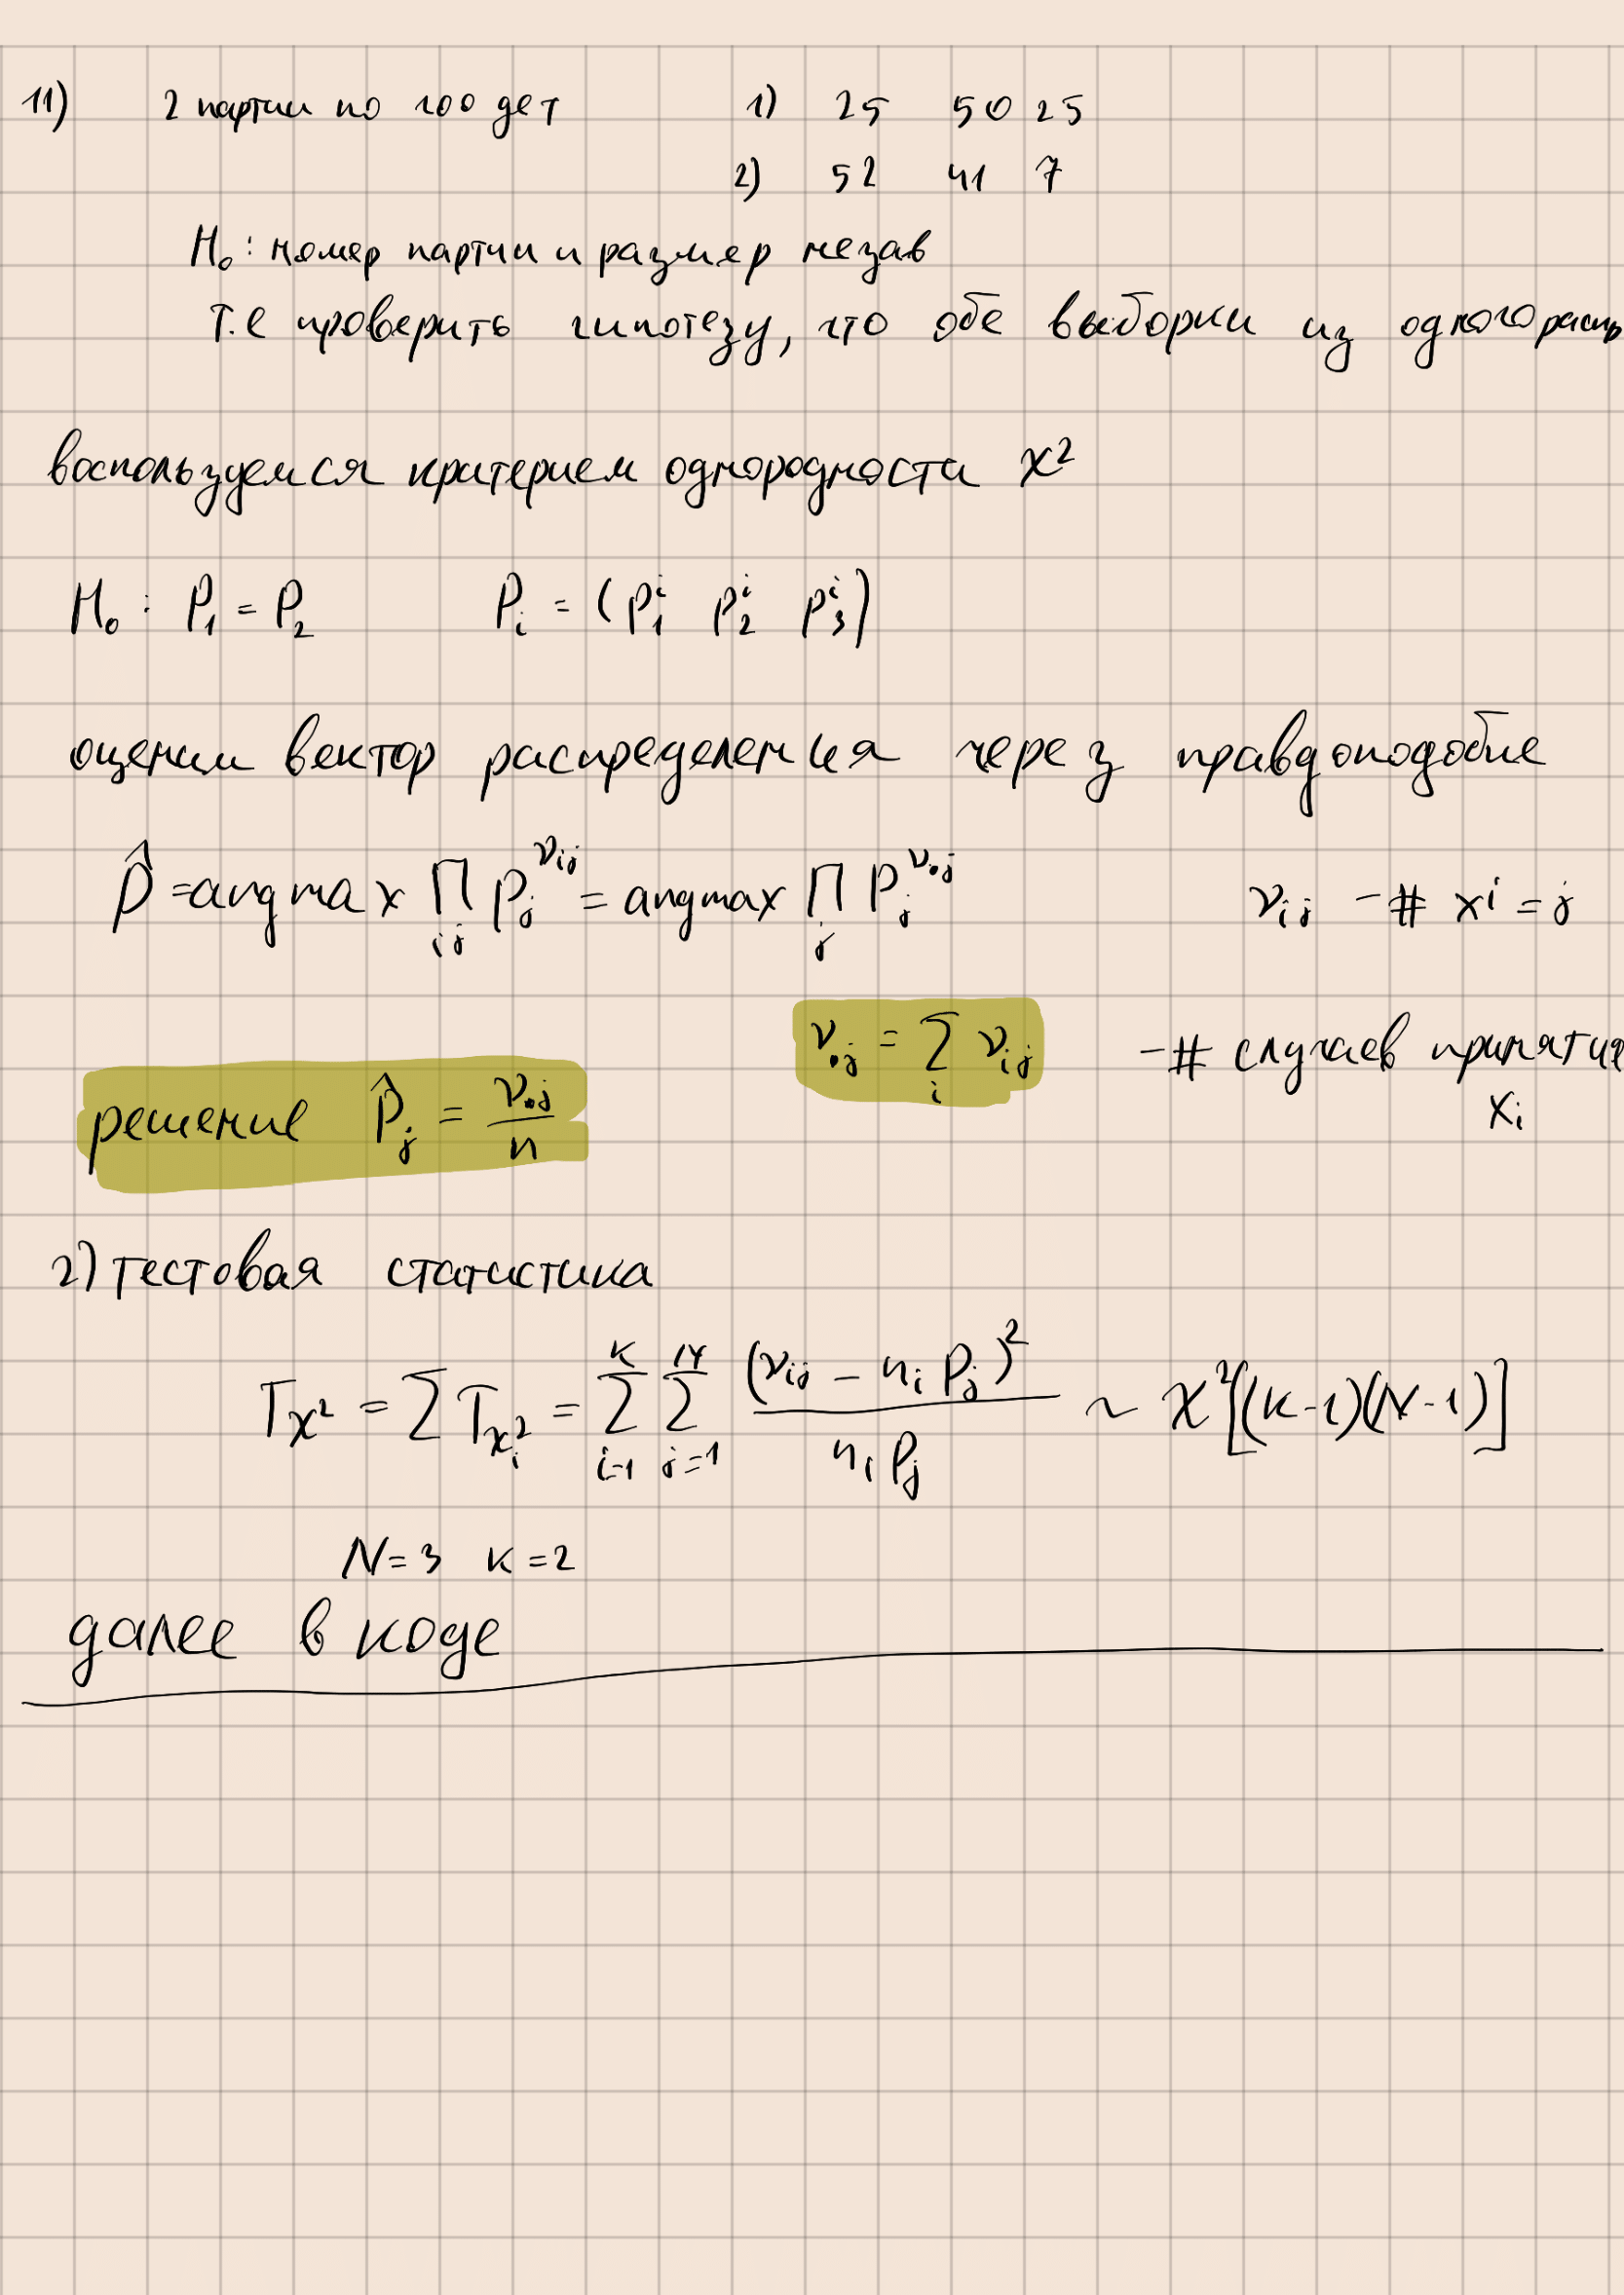 11) 2 партии по 100 дет 1) 25 50 25
2) 52 41 7
H₀: номер партии и размер незав
т.е проверить гипотезу, что обе выборки из одного расп
воспользуемся критерием однородности χ²
H₀: P₁ = P₂ Pᵢ = (p₁ⁱ p₂ⁱ p₃ⁱ)
оценим вектор распределения через правдоподобие
p̂ = argmax ∏_{ij} p_j^{ν_{ij}} = argmax ∏_j P_j^{ν_{•j}} ν_{ij} - # xⁱ = j
ν_{•j} = ∑_i ν_{ij} - # случаев принятия
xᵢ
решение p̂_j = ν_{•j}/n
2) тестовая статистика
T_{χ²} = ∑ T_{χ²_i} = ∑_{i=1}^{K} ∑_{j=1}^{N} (ν_{ij} - n_i p_j)² / n_i p_j ~ χ²[(K-1)(N-1)]
N=3 K=2
далее в коде